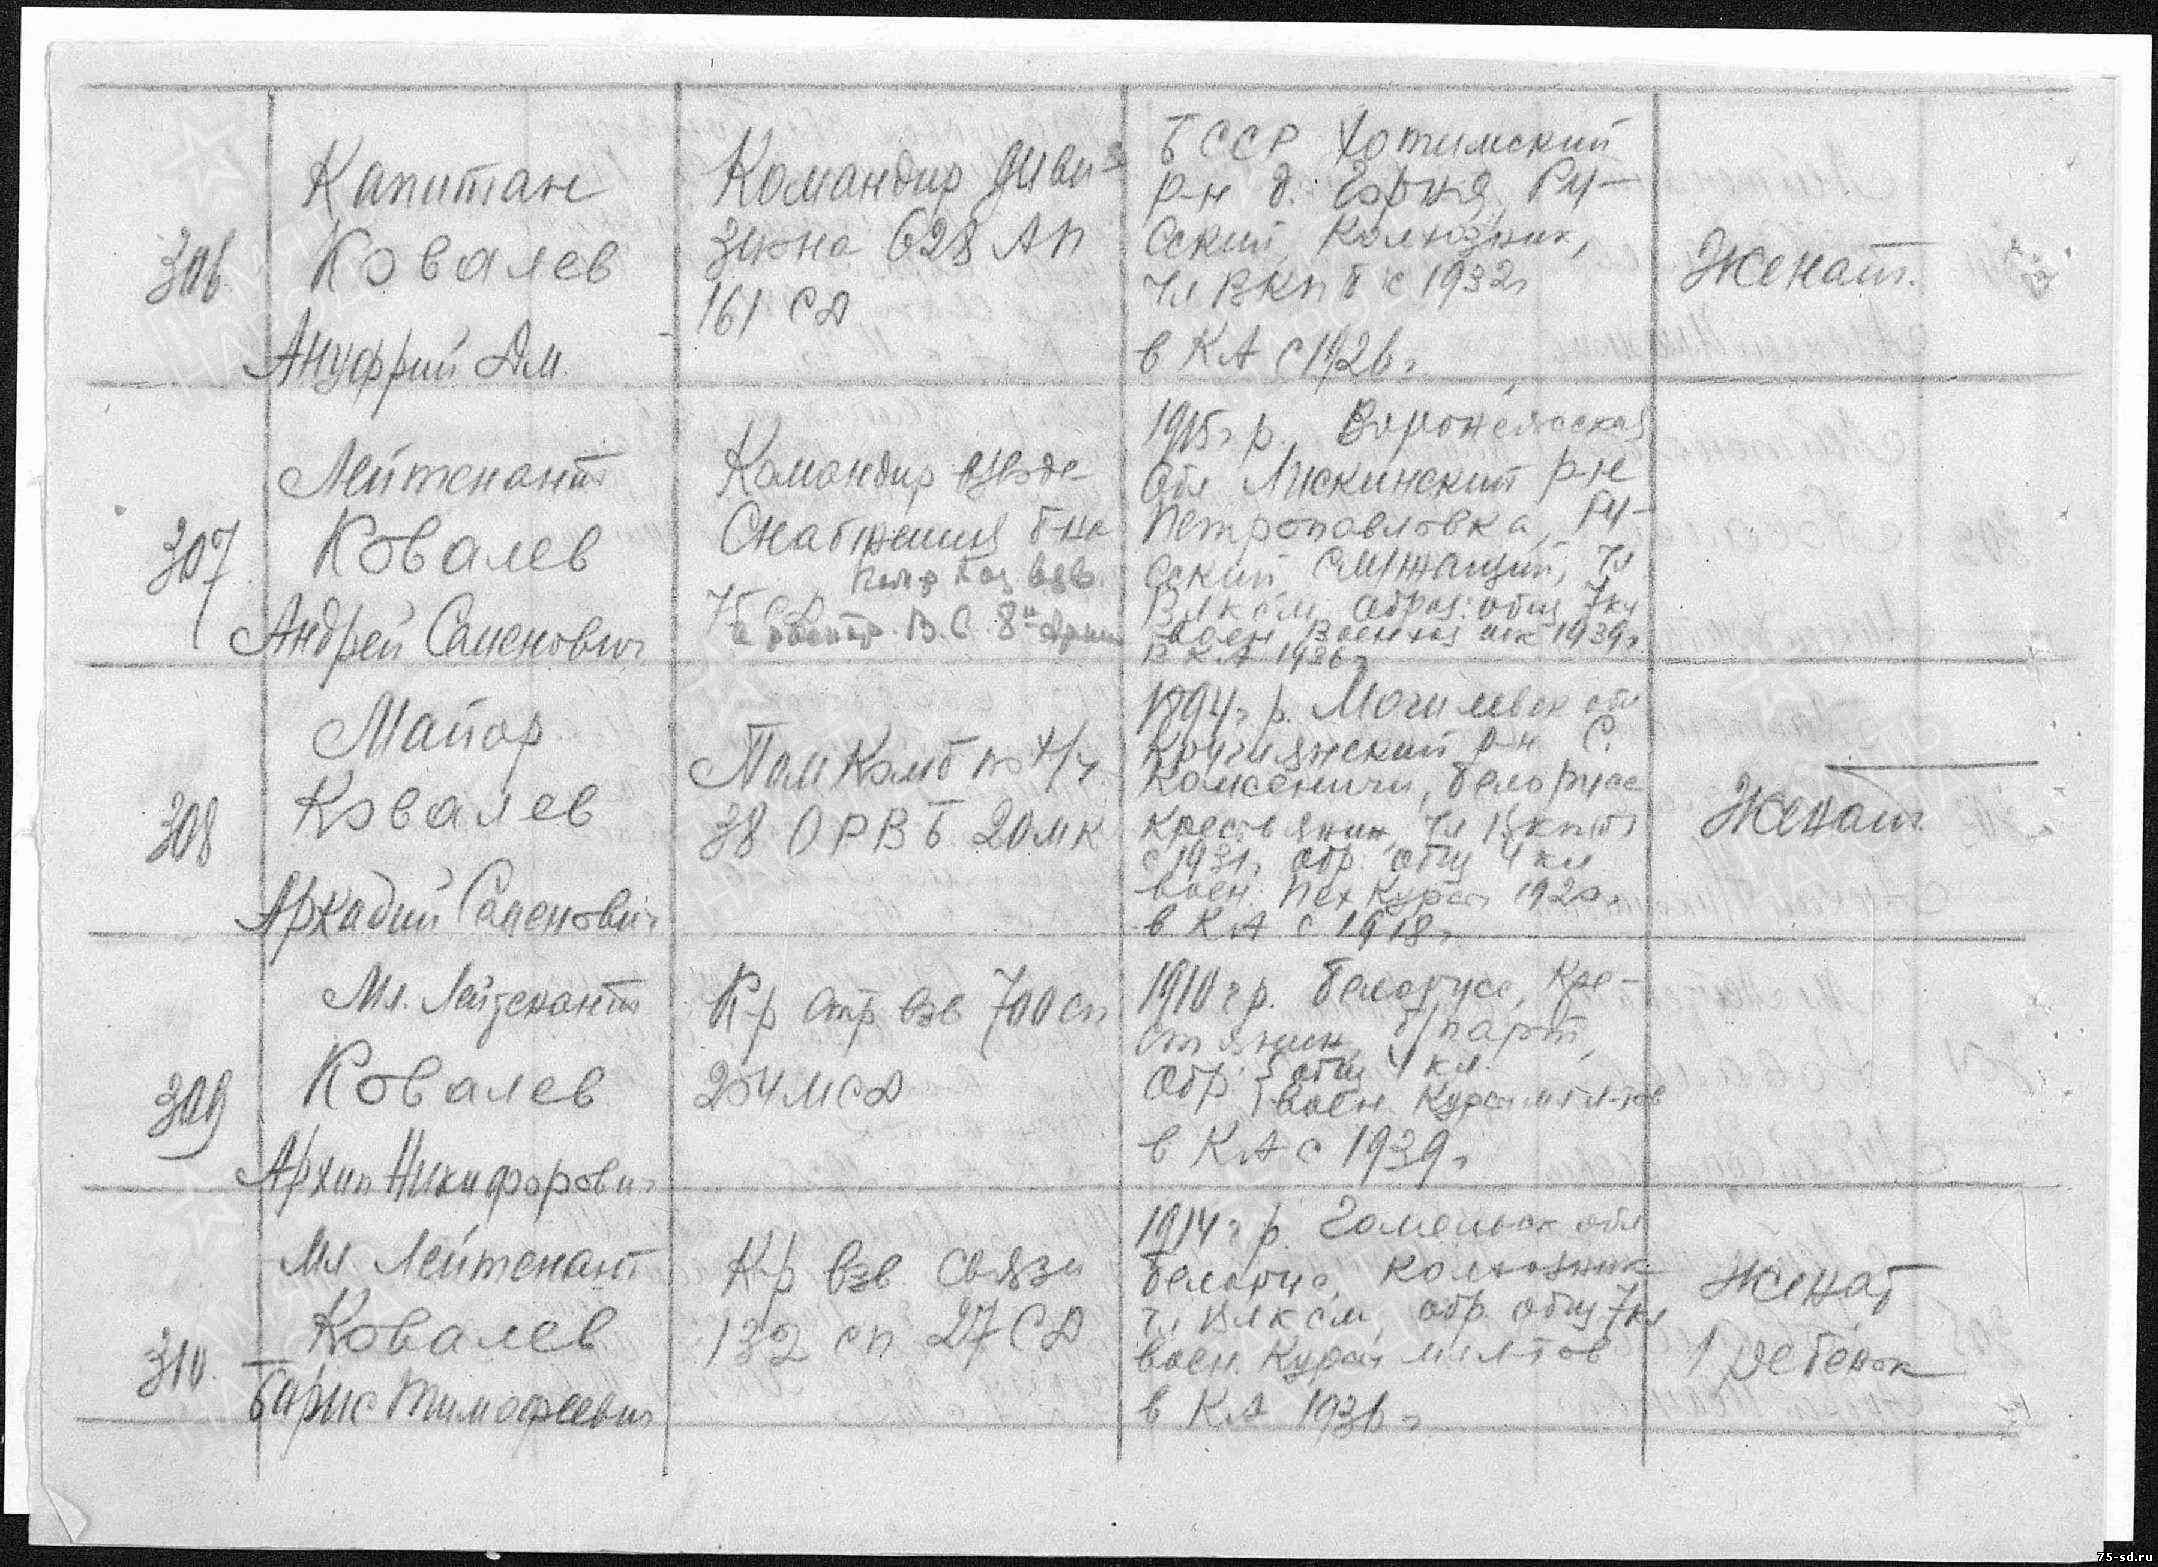 306
Капитан
Ковалев
Ануфрий Дм.
Командир диви-
зиона 628 АП
161 СД
БССР Хотимский
р-н д. Горня, Ру-
сский, Колхозник,
Чл ВКП б с 1932г
в КА с 1926г
Женат.
307
Лейтенант
Ковалев
Андрей Семенович
Командир взвода
Снабжения б-на
75 СД
В.С. 8й Армии
1915г р. Воронежская
Обл Лискинский р-н
Петропавловка, Ру-
сский, Служащий, чл
ВЛКСМ, Образ: общ 7кл
воен. Военная шк 1939г.
В КА 1936г
308
Майор
Ковалев
Аркадий Семенович
Пом Комб по т/ч
38 ОРВБ 20мк
1894г р. Могилевск обл
Круглянский р-н С.
Комсеничи, Белорусс
Крестьянин, Чл Вкп(б)
с 1931г Обр. общ 4 кл
воен. Пех Курсы 1920г
в КА с 1918г
Женат.
309
Мл. Лейтенант
Ковалев
Архип Никифорович
К-р стр взв 700 сп
204 МСД
1910 г р. Белорусс, Кре-
стьянин, б/парт,
Обр. общ 4 кл.
воен. Курсы мл л-тов
в КА с 1939г
310.
Мл Лейтенант
Ковалев
Борис Тимофеевич
К-р взв Связи
132 сп 27 СД
1914г р. Гомельск обл
Белорус, Колхозник
чл ВЛКСМ, обр. общ 7кл
воен. Курсы мл л-тов
в КА 1936г
Женат
1 ребенок
75-sd.ru